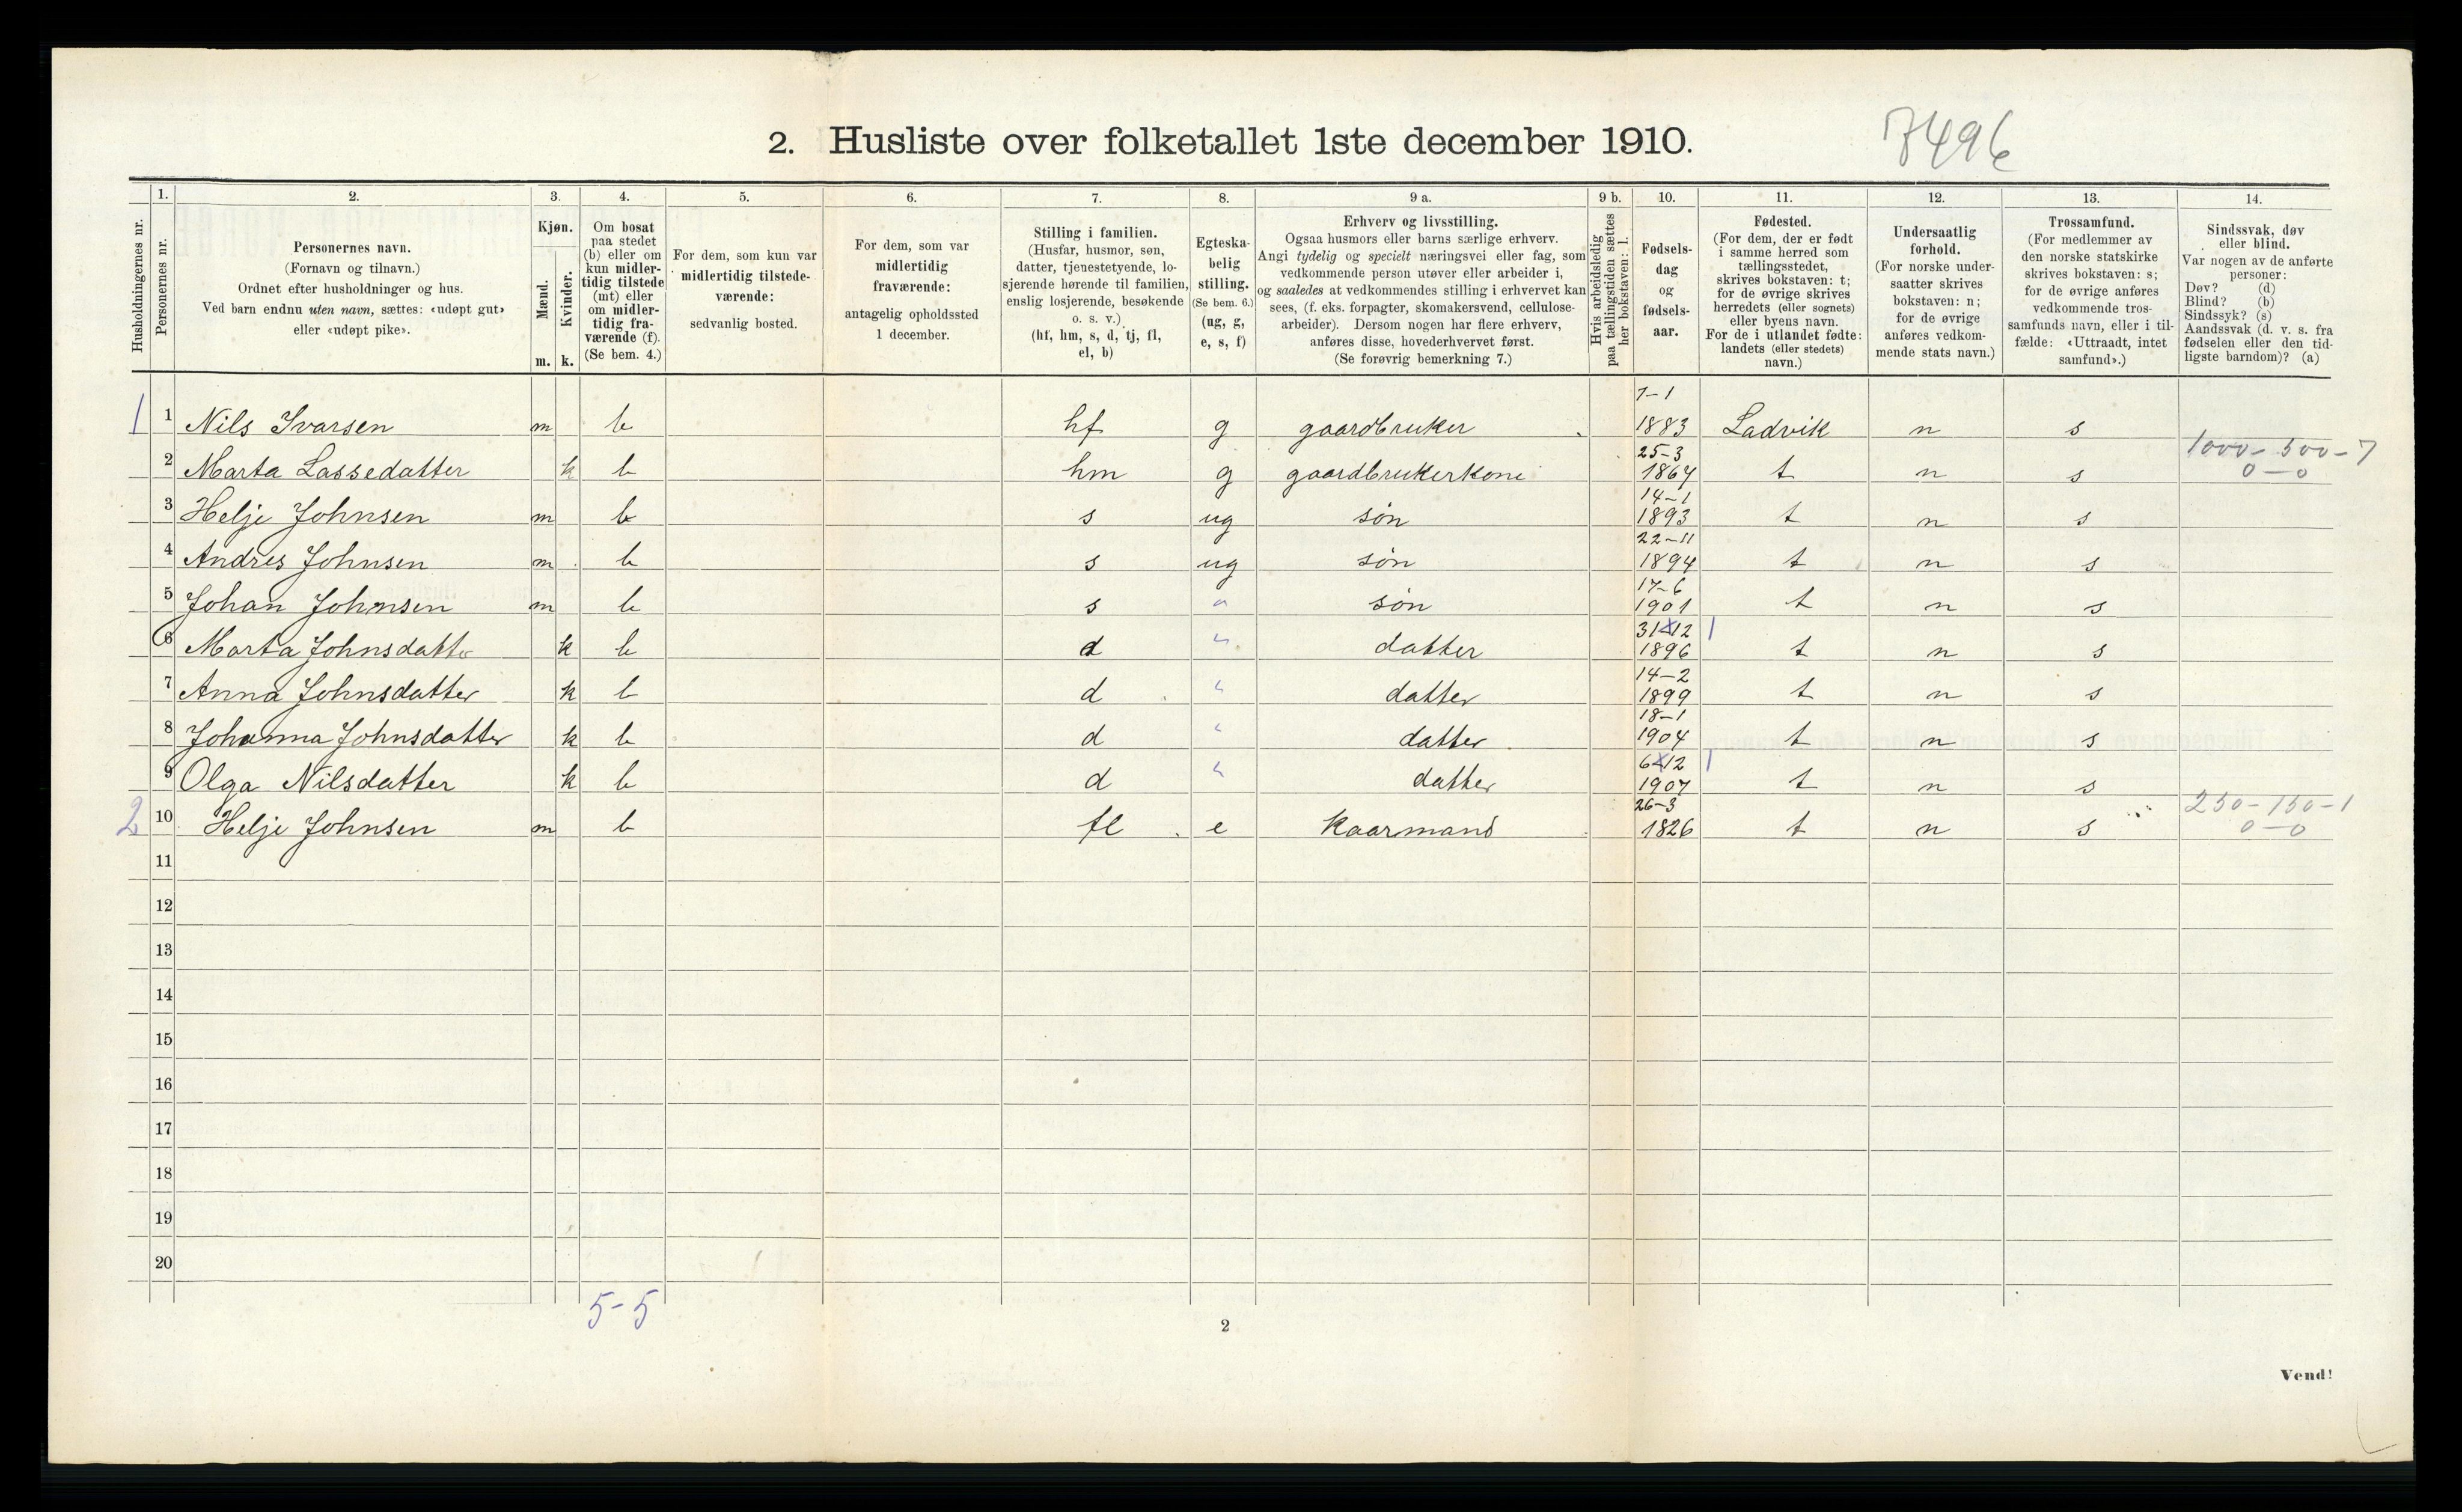 2. Husliste over folketallet 1ste december 1910.
7496
Husholdningernes nr.
1.
Personernes nr.
2.
Personernes navn.
(Fornavn og tilnavn.)
Ordnet efter husholdninger og hus.
Ved barn endnu uten navn, sættes: «udøpt gut»
eller «udøpt pike».
3.
Kjøn.
Mænd.
Kvinder.
m. k.
4.
Om bosat
paa stedet
(b) eller om
kun midler-
tidig tilstede
(mt) eller
om midler-
tidig fra-
værende (f).
(Se bem. 4.)
5.
For dem, som kun var
midlertidig tilstede-
værende:
sedvanlig bosted.
6.
For dem, som var
midlertidig
fraværende:
antagelig opholdssted
1 december.
7.
Stilling i familien.
(Husfar, husmor, søn,
datter, tjenestetyende, lo-
sjerende hørende til familien,
enslig losjerende, besøkende
o. s. v.)
(hf, hm, s, d, tj, fl,
el, b)
8.
Egteska-
belig
stilling.
(Se bem. 6.)
(ug, g,
e, s, f)
9 a.
Erhverv og livsstilling.
Ogsaa husmors eller barns særlige erhverv.
Angi tydelig og specielt næringsvei eller fag, som
vedkommende person utøver eller arbeider i,
og saaledes at vedkommendes stilling i erhvervet kan
sees, (f. eks. forpagter, skomakersvend, cellulose-
arbeider). Dersom nogen har flere erhverv,
anføres disse, hovederhvervet først.
(Se forøvrig bemerkning 7.)
9 b.
Hvis arbeidsledig
paa tællingstiden sættes
her bokstaven: l.
10.
Fødsels-
dag
og
fødsels-
aar.
11.
Fødested.
(For dem, der er født
i samme herred som
tællingsstedet,
skrives bokstaven: t;
for de øvrige skrives
herredets (eller sognets)
eller byens navn.
For de i utlandet fødte:
landets (eller stedets)
navn.)
12.
Undersaatlig
forhold.
(For norske under-
saatter skrives
bokstaven: n;
for de øvrige
anføres vedkom-
mende stats navn.)
13.
Trossamfund.
(For medlemmer av
den norske statskirke
skrives bokstaven: s;
for de øvrige anføres
vedkommende tros-
samfunds navn, eller i til-
fælde: «Uttraadt, intet
samfund».)
14.
Sindssvak, døv
eller blind.
Var nogen av de anførte
personer:
Døv? (d)
Blind? (b)
Sindssyk? (s)
Aandssvak (d. v. s. fra
fødselen eller den tid-
ligste barndom)? (a)
1 1 Nils Ivarsen m b hf g gaardbruker 7-1 1883 Ladvik n s
2 Marta Lassedatter k b hm g gaardbrukerkone 25-3 1864 t n s 1000-500-7 0-0
3 Helje Johnsen m b s ug søn 14-1 1893 t n s
4 Andres Johnsen m b s ug søn 22-11 1894 t n s
5 Johan Johnsen m b s " søn 17-6 1901 t n s
6 Marta Johnsdatter k b d " datter 31-12 1896 t n s
7 Anna Johnsdatter k b d " datter 14-2 1899 t n s
8 Johanna Johnsdatter k b d " datter 18-1 1904 t n s
9 Olga Nilsdatter k b d " datter 6-12 1907 t n s
2 10 Helje Johnsen m b fl e Kaarmand 26-3 1826 t n s 250-150-1 0-0
11
12
13
14
15
16
17
18
19
20
5-5
2
Vend!